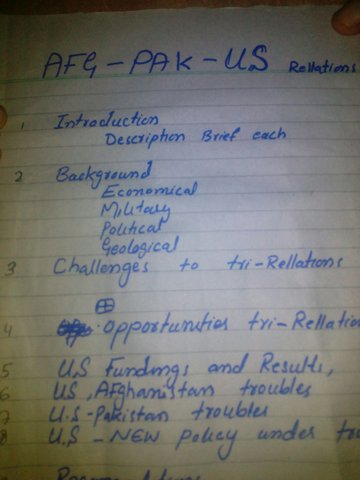 AFG - PAK - US Rellations
1 Introduction
Description Brief each
2 Background
Economical
Military
Political
Geological
3 Challenges to tri-Rellations
4 opportunities tri-Rellation
5 U.S Fundings and Results,
6 US, Afghanistan troubles
7 U.S-Pakistan troubles
8 U.S - NEW policy under